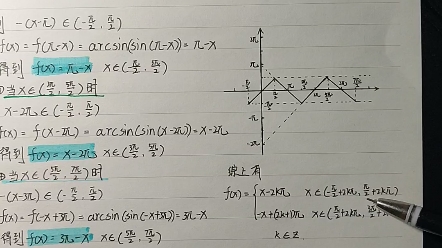 -(x-π)∈(-π/2, π/2)
f(x) = f(π-x) = arcsin(sin(π-x)) = π-x
得到 f(x)=π-x x∈(π/2, 3π/2)
当x∈(3π/2, 5π/2)时
x-2π∈(-π/2, π/2)
f(x) = f(x-2π) = arcsin(sin(x-2π)) = x-2π
得到 f(x)=x-2π x∈(3π/2, 5π/2)
当x∈(5π/2, 7π/2)时
-(x-3π)∈(-π/2, π/2)
f(x) = f(-x+3π) = arcsin(sin(-x+3π)) = 3π-x
得到 f(x)=3π-x x∈(5π/2, 7π/2)
综上有
f(x)= x-2kπ x∈(-π/2+2kπ, π/2+2kπ)
-x+(2k+1)π x∈(π/2+2kπ, 3π/2+2
k∈Z